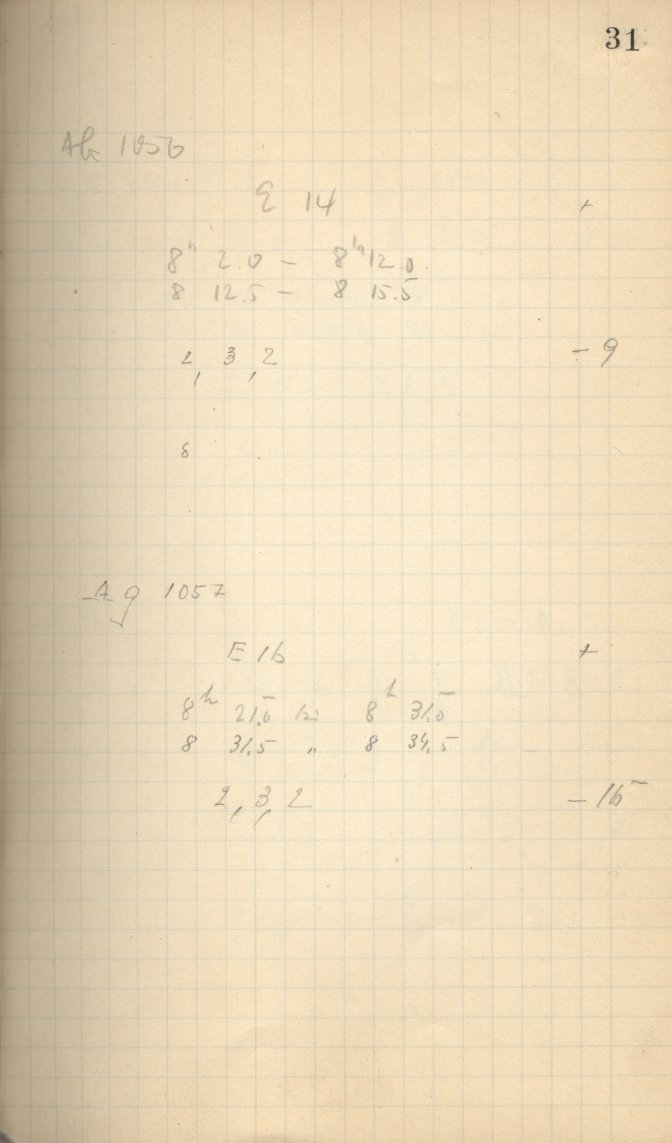 31
Ag 1056
E 14 +
8h 2.0 – 8h 12.0
8 12.5 – 8 15.5
2, 3, 2 – 9
6
Ag 1057
E 16 +
8h 21.5 bis 8h 31.5
8 31.5 " 8 34.5
2, 3, 2 – 15